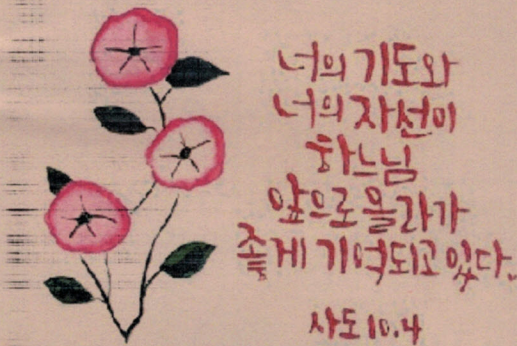 너의 기도와
너의 자선이
하느님
앞으로 올라가
좋게 기억되고 있다.
사도 10.4